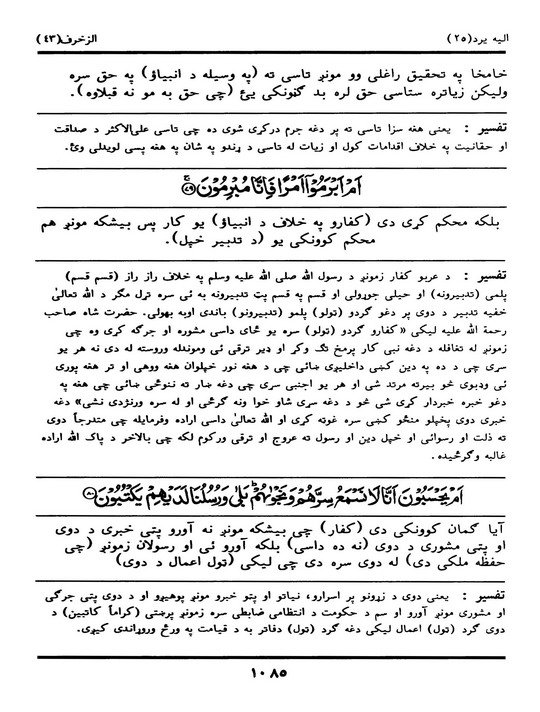 الیه یرد(٢٥) الزخرف(٤٣)
خامخا په تحقیق راغلی وو مونږ تاسی ته (په وسیله د انبیاؤ) په حق سره
ولیکن زیاتره ستاسی حق لره بد ګڼونکی یئ (چی حق به مو نه قبلاوه).
تفسیر : یعنی هغه سزا تاسی ته پر دغه جرم درکړی شوی ده چی تاسی علی‌الاکثر د صداقت
او حقانیت په خلاف اقدامات کول او زیات له تاسی د ړندو په شان په هغه پسی لویدلی وئ.
اَمْ اَبْرَمُوْۤا اَمْرًا فَاِنَّا مُبْرِمُوْنَ ۚ﴿٧٩﴾
بلکه محکم کړی دی (کفارو په خلاف د انبیاؤ) یو کار پس بیشکه مونږ هم
محکم کوونکی یو (د تدبیر خپل).
تفسیر : د عربو کفار زمونږ د رسول الله صلی الله علیه وسلم په خلاف راز راز (قسم قسم)
پلمی (تدبیرونه) او حیلی جوړولی او قسم په قسم پټ تدبیرونه به ئی سره تړل مګر د الله تعالیٰ
خفیه تدبیر د دوی پر دغو ګردو (تولو) پلمو (تدبیرونو) باندی اوبه بهولی. حضرت شاه صاحب
رحمة الله علیه لیکی «کفارو ګردو (تولو) سره یو ځای داسی مشوره او جرګه کړی وه چی
زمونږ له تغافله د دغه نبی کار پرمخ تګ وکړ او ډیر ترقی ئی وموندله وروسته له دی نه هر یو
سړی چی د ده په دین کښی داخلیږی ښائی چی د هغه نور خپلوان هغه ووهی او تر هغه پوری
ئی وډبوی څو بیرته مرتد شی او هر یو اجنبی سړی چی دغه ښار ته ننوځی ښائی چی هغه په
دغو خبره خبردار کړی شی څو د دغه سړی شاو خوا ونه ګرځی او له سره ورنږدی نشی» دغه
خبری دوی پخپلو منځو کښی سره غوټه کړی او الله تعالیٰ داسی اراده وفرمایله چی متدرجاً دوی
ته ذلت او رسوائی او خپل دین او رسول ته عروج او ترقی ورکوم لکه چی بالاخر د پاک الله اراده
غالبه وګرځیده.
اَمْ يَحْسَبُوْنَ اَنَّا لَا نَسْمَعُ سِرَّهُمْ وَنَجْوٰىهُمْ ؕ بَلٰى وَرُسُلُنَا لَدَيْهِمْ يَكْتُبُوْنَ ﴿٨٠﴾
آیا ګمان کوونکی دی (کفار) چی بیشکه مونږ نه آورو پټی خبری د دوی
او پټی مشوری د دوی (نه ده داسی) بلکه آورو ئی او رسولان زمونږ (چی
حفظه ملکی دی) له دوی سره دی چی لیکی (تول اعمال د دوی)
تفسیر : یعنی دوی د زړونو پر اسرارو، نیاتو او پټو خبرو مونږ پوهیږو او د دوی پټی جرګی
او مشوری مونږ آورو او سم د حکومت د انتظامی ضابطی سره زمونږ پرښتی (کراماً کاتبین) د
دوی ګرد (تول) اعمال لیکی دغه ګرد (تول) دفاتر به د قیامت په ورځ وړوړاندی کیږی.
١٠٨٥